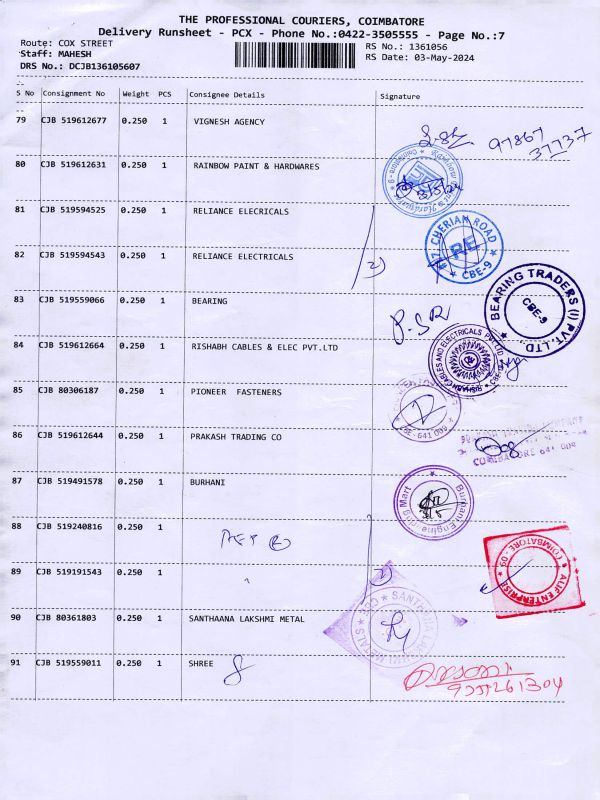 THE PROFESSIONAL COURIERS, COIMBATORE
Delivery Runsheet - PCX - Phone No.:0422-3505555 - Page No.:7
Route: COX STREET
RS No.: 1361056
Staff: MAHESH
RS Date: 03-May-2024
DRS No.: DCJB136105607
S No Consignment No Weight PCS Consignee Details Signature
79 CJB 519612677 0.250 1 VIGNESH AGENCY
97867
37737
80 CJB 519612631 0.250 1 RAINBOW PAINT & HARDWARES
81 CJB 519594525 0.250 1 RELIANCE ELECRICALS
CHERIAN ROAD
RE
★ CBE-9 ★
82 CJB 519594543 0.250 1 RELIANCE ELECTRICALS
2)
83 CJB 519559066 0.250 1 BEARING
BEARING TRADERS (I) PVT. LTD.,
CBE-9
P.SR
84 CJB 519612664 0.250 1 RISHABH CABLES & ELEC PVT.LTD
RISHABH CABLES AND ELECTRICALS PVT LTD
85 CJB 80306187 0.250 1 PIONEER FASTENERS
CBE - 641 009
86 CJB 519612644 0.250 1 PRAKASH TRADING CO
COIMBATORE 641 009
87 CJB 519491578 0.250 1 BURHANI
Burhani Engineering Mart
88 CJB 519240816 0.250 1
89 CJB 519191543 0.250 1
2)
★ ALIF ENTERPRISE ★
COIMBATORE - 09
90 CJB 80361803 0.250 1 SANTHAANA LAKSHMI METAL
91 CJB 519559011 0.250 1 SHREE